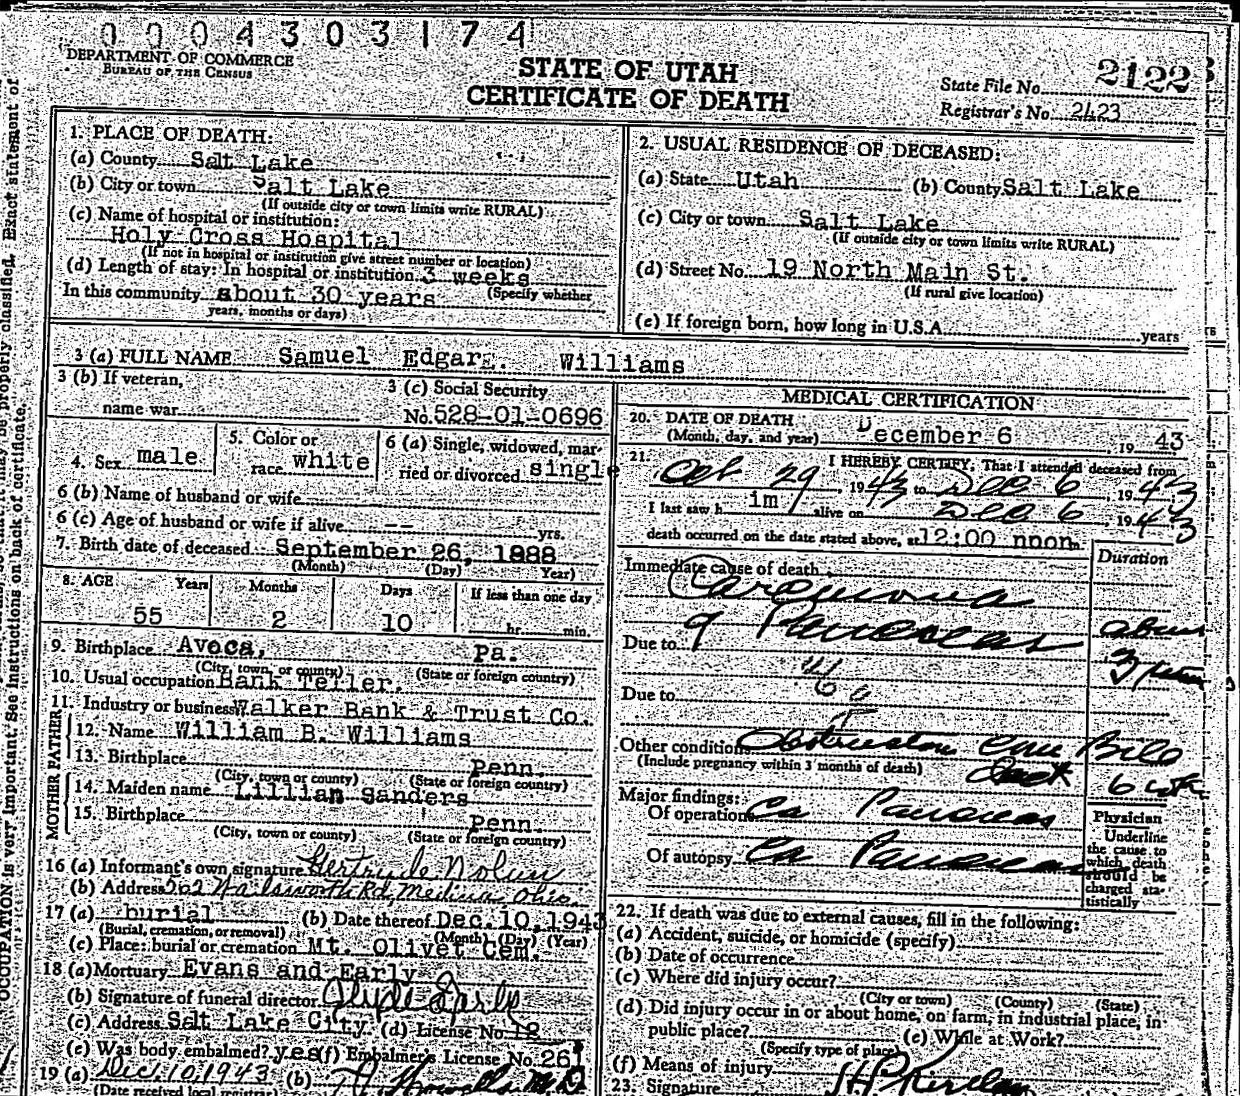 0004303174
DEPARTMENT OF COMMERCE
BUREAU OF THE CENSUS
STATE OF UTAH
CERTIFICATE OF DEATH
State File No. 2122
Registrar's No. 2423
1. PLACE OF DEATH:
(a) County Salt Lake
(b) City or town Salt Lake
(If outside city or town limits write RURAL)
(c) Name of hospital or institution:
Holy Cross Hospital
(If not in hospital or institution give street number or location)
(d) Length of stay: In hospital or institution 3 weeks
In this community about 30 years (Specify whether
years, months or days)
2. USUAL RESIDENCE OF DECEASED:
(a) State Utah (b) County Salt Lake
(c) City or town Salt Lake
(If outside city or town limits write RURAL)
(d) Street No. 19 North Main St.
(If rural give location)
(e) If foreign born, how long in U.S.A. years
3 (a) FULL NAME Samuel Edgar. Williams
3 (b) If veteran,
name war
3 (c) Social Security
No. 528-01-0696
4. Sex male
5. Color or
race white
6 (a) Single, widowed, mar-
ried or divorced single
6 (b) Name of husband or wife
6 (c) Age of husband or wife if alive -- yrs.
7. Birth date of deceased September 26, 1888
(Month) (Day) Year)
8. AGE Years Months Days If less than one day
55 2 10 hr. min.
9. Birthplace Avoca, Pa.
(City, town, or county) (State or foreign country)
10. Usual occupation Bank Teller.
11. Industry or business Walker Bank & Trust Co.
FATHER
12. Name William B. Williams
13. Birthplace Penn.
(City, town or county) (State or foreign country)
MOTHER
14. Maiden name Lillian Sanders
15. Birthplace Penn.
(City, town or county) (State or foreign country)
16 (a) Informant's own signature Gertrude Nolan
(b) Address 562 Rd, Medina, Ohio.
17 (a) burial (b) Date thereof Dec. 10, 1943
(Burial, cremation, or removal) (Month) (Day) (Year)
(c) Place: burial or cremation Mt. Olivet Cem.
18 (a) Mortuary Evans and Early
(b) Signature of funeral director Clyde Early
(c) Address Salt Lake City (d) License No. 12
(e) Was body embalmed? yes (f) Embalmer's License No. 261
19 (a) Dec. 10, 1943 (b) M.D.
(Date received local registrar)
MEDICAL CERTIFICATION
20. DATE OF DEATH
(Month, day, and year) December 6, 19 43
21. I HEREBY CERTIFY, That I attended deceased from
Oct 29, 1943 to Dec 6, 1943
I last saw h im alive on Dec 6, 1943
death occurred on the date stated above, at 12:00 noon m.
Duration
Immediate cause of death
Carcinoma
Due to of Pancreas
3
Due to
Other conditions Obstruction Com Bile
(Include pregnancy within 3 months of death) duct 6
Major findings:
Of operations Ca Pancreas
Of autopsy Ca Pancreas
Physician
Underline
the cause to
which death
should be
charged sta-
tistically
22. If death was due to external causes, fill in the following:
(a) Accident, suicide, or homicide (specify)
(b) Date of occurrence
(c) Where did injury occur?
(City or town) (County) (State)
(d) Did injury occur in or about home, on farm, in industrial place, in
public place? (e) While at Work?
(Specify type of place)
(f) Means of injury
23. Signature
OCCUPATION is very important. See instructions on back of certificate.
may be properly classified. Exact statement of